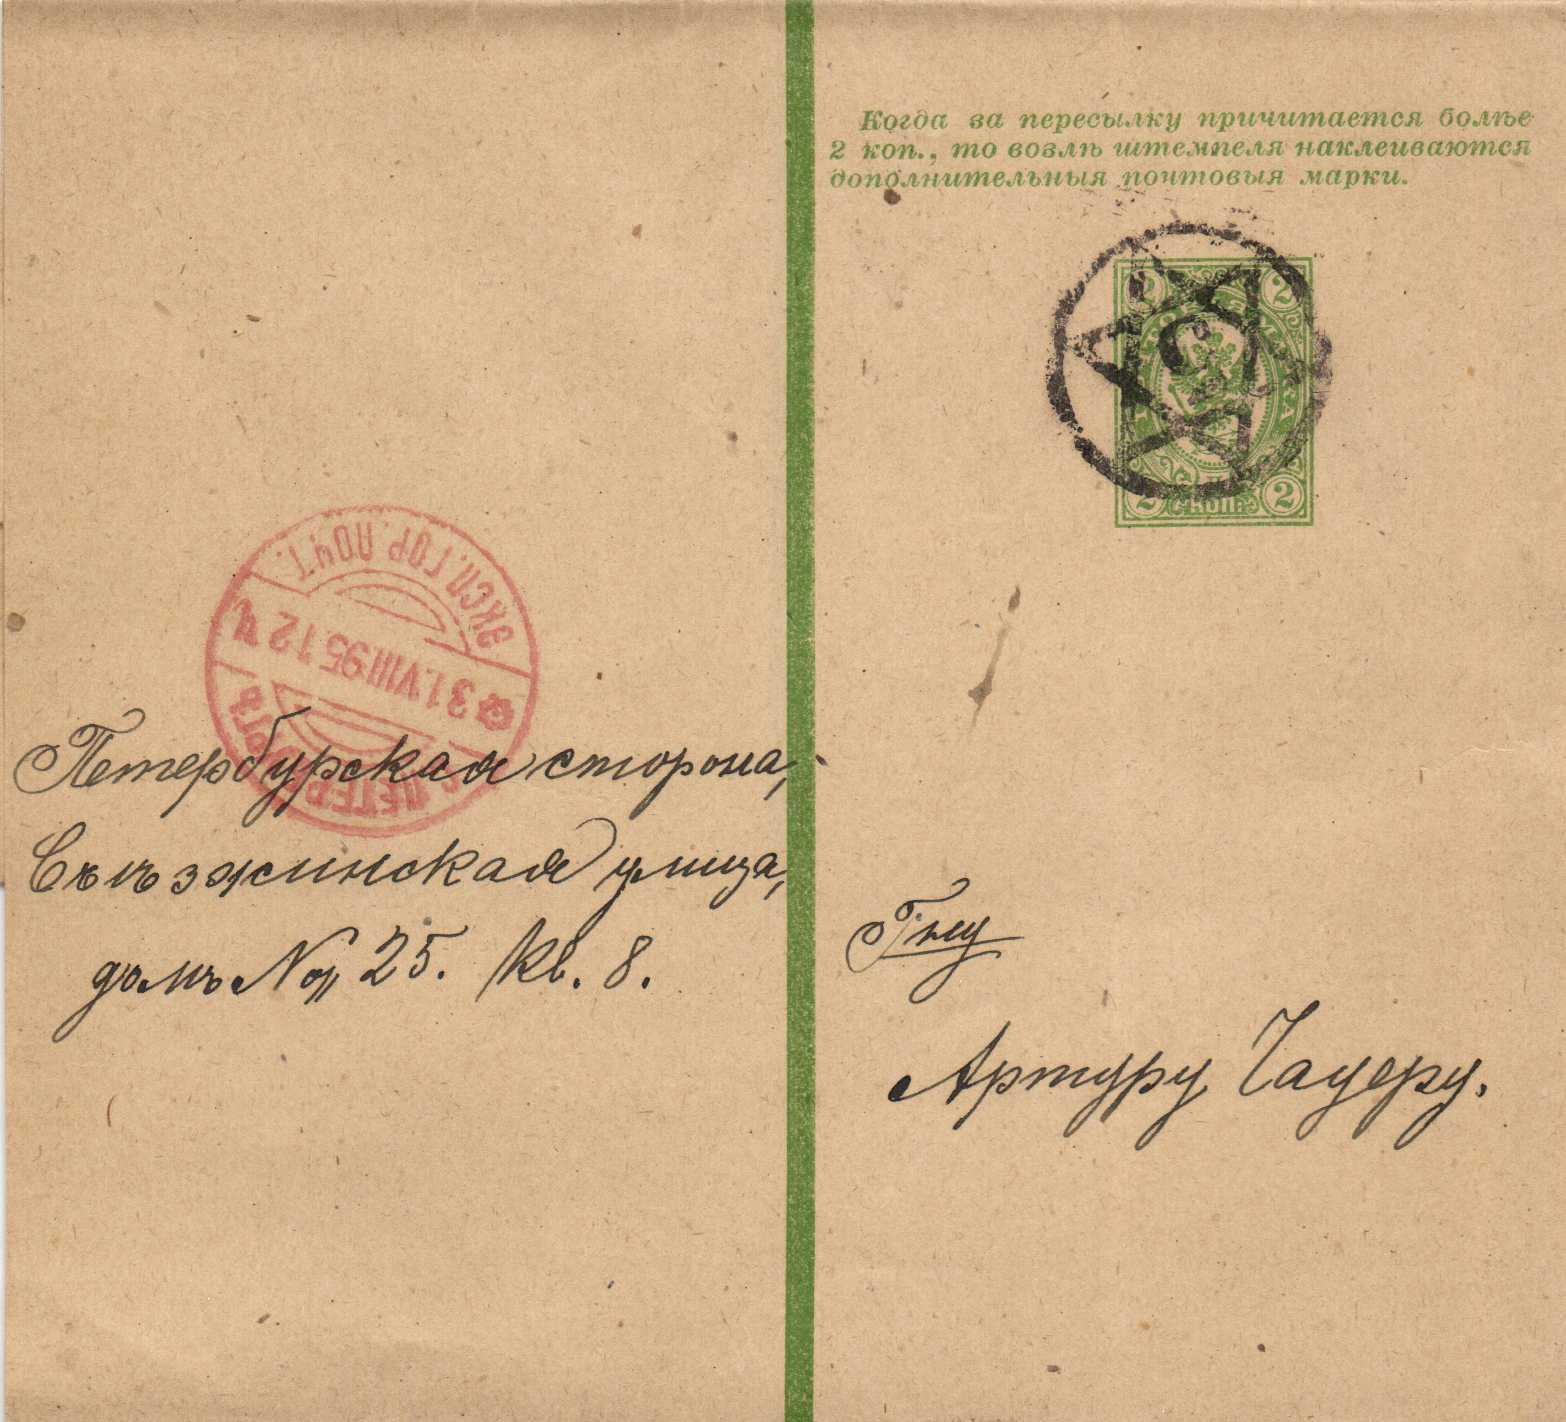 Когда за пересылку причитается болѣе
2 коп., то возлѣ штемпеля наклеиваются
дополнительныя почтовыя марки.
2 2
МАРКА
2 КОП. 2
5
ЭКСП. ГОР. ПОЧТ.
31.VIII.95 12 Ч
С. ПЕТЕРБУРГЪ
Петербурская сторона,
Съѣзжинская улица,
домъ № 25. кв. 8.
Гну
Артуру Чадеру.